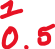 1
0.5